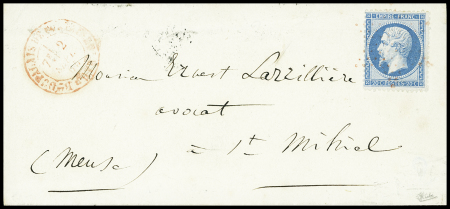 EMPIRE FRANC
20 C POSTES 20 C
Monsieur Ernest Larzillière
avocat
= St. Mihiel
(Meuse)